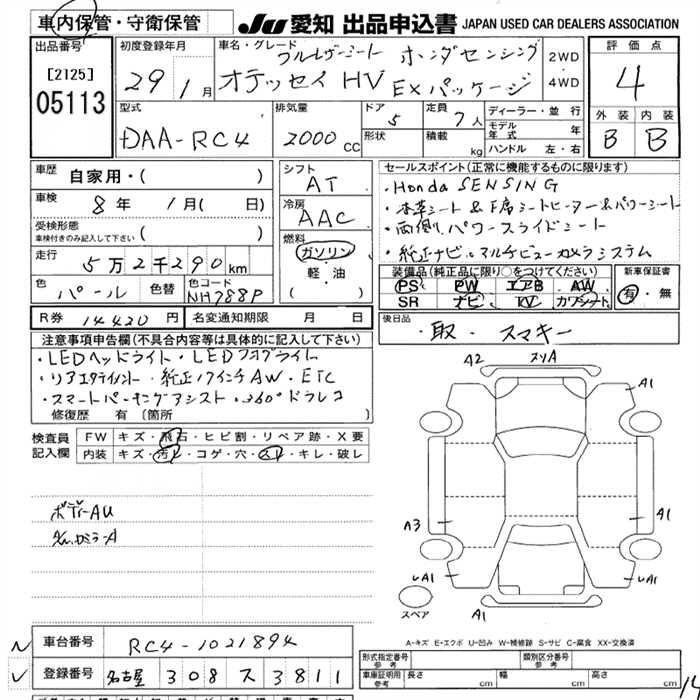 車内保管・守衛保管
JU 愛知 出品申込書 JAPAN USED CAR DEALERS ASSOCIATION
出品番号
[2125]
05113
初度登録年月
29年 1月
車名・グレード
フルレザーシート ホンダセンシング
オデッセイ HV EXパッケージ
2WD
・
4WD
評価点
4
外装 内装
B B
型式
DAA-RC4
排気量
2000 cc
ドア
5
形状
定員
7人
積載
kg
ディーラー・並行
モデル年式 年
ハンドル 左・右
車歴
自家用・( )
車検
8年 1月( 日)
受検形態
車検付きのみ記入して下さい ( )
走行
5万2千290km
色
パール
色替
色コード
NH788P
シフト
AT
冷房
AAC
燃料
ガソリン
軽・油
( )
セールスポイント(正常に機能するものに限ります)
・Honda SENSING
・本革シート&F席シートヒーター&パワーシート
・両側パワースライドシート
・純正ナビ&マルチビューカメラシステム
装備品(純正品に限り○をつけてください)
PS PW エアB AW
SR ナビ TV カワシート
新車保証書
有・無
R券 14420円 名変通知期限 月 日
後日品
・取、スマキー
注意事項申告欄(不具合内容等は具体的に記入して下さい)
・LEDヘッドライト・LEDフォグライト
・リアエンタテイメント・純正17インチAW・ETC
・スマートパーキングアシスト・360°ドラレコ
修復歴 有 (箇所 )
検査員
記入欄
FW キズ・飛石・ヒビ割・リペア跡・X要
内装 キズ・汚れ・コゲ・穴・スレ・キレ・破レ
ボデーAU
A2 ヌリA
A1
A1
A3
A1
レA1
レA1
A1
スペア
A-キズ E-エクボ U-凹み W-補修跡 S-サビ C-腐食 XX-交換済
N 車台番号 RC4-1021894
レ 登録番号 名古屋 308 ス 3811
形式指定番号
参考
類別区分番号
参考
車庫証明用
参考
長さ cm
幅 cm
高さ cm